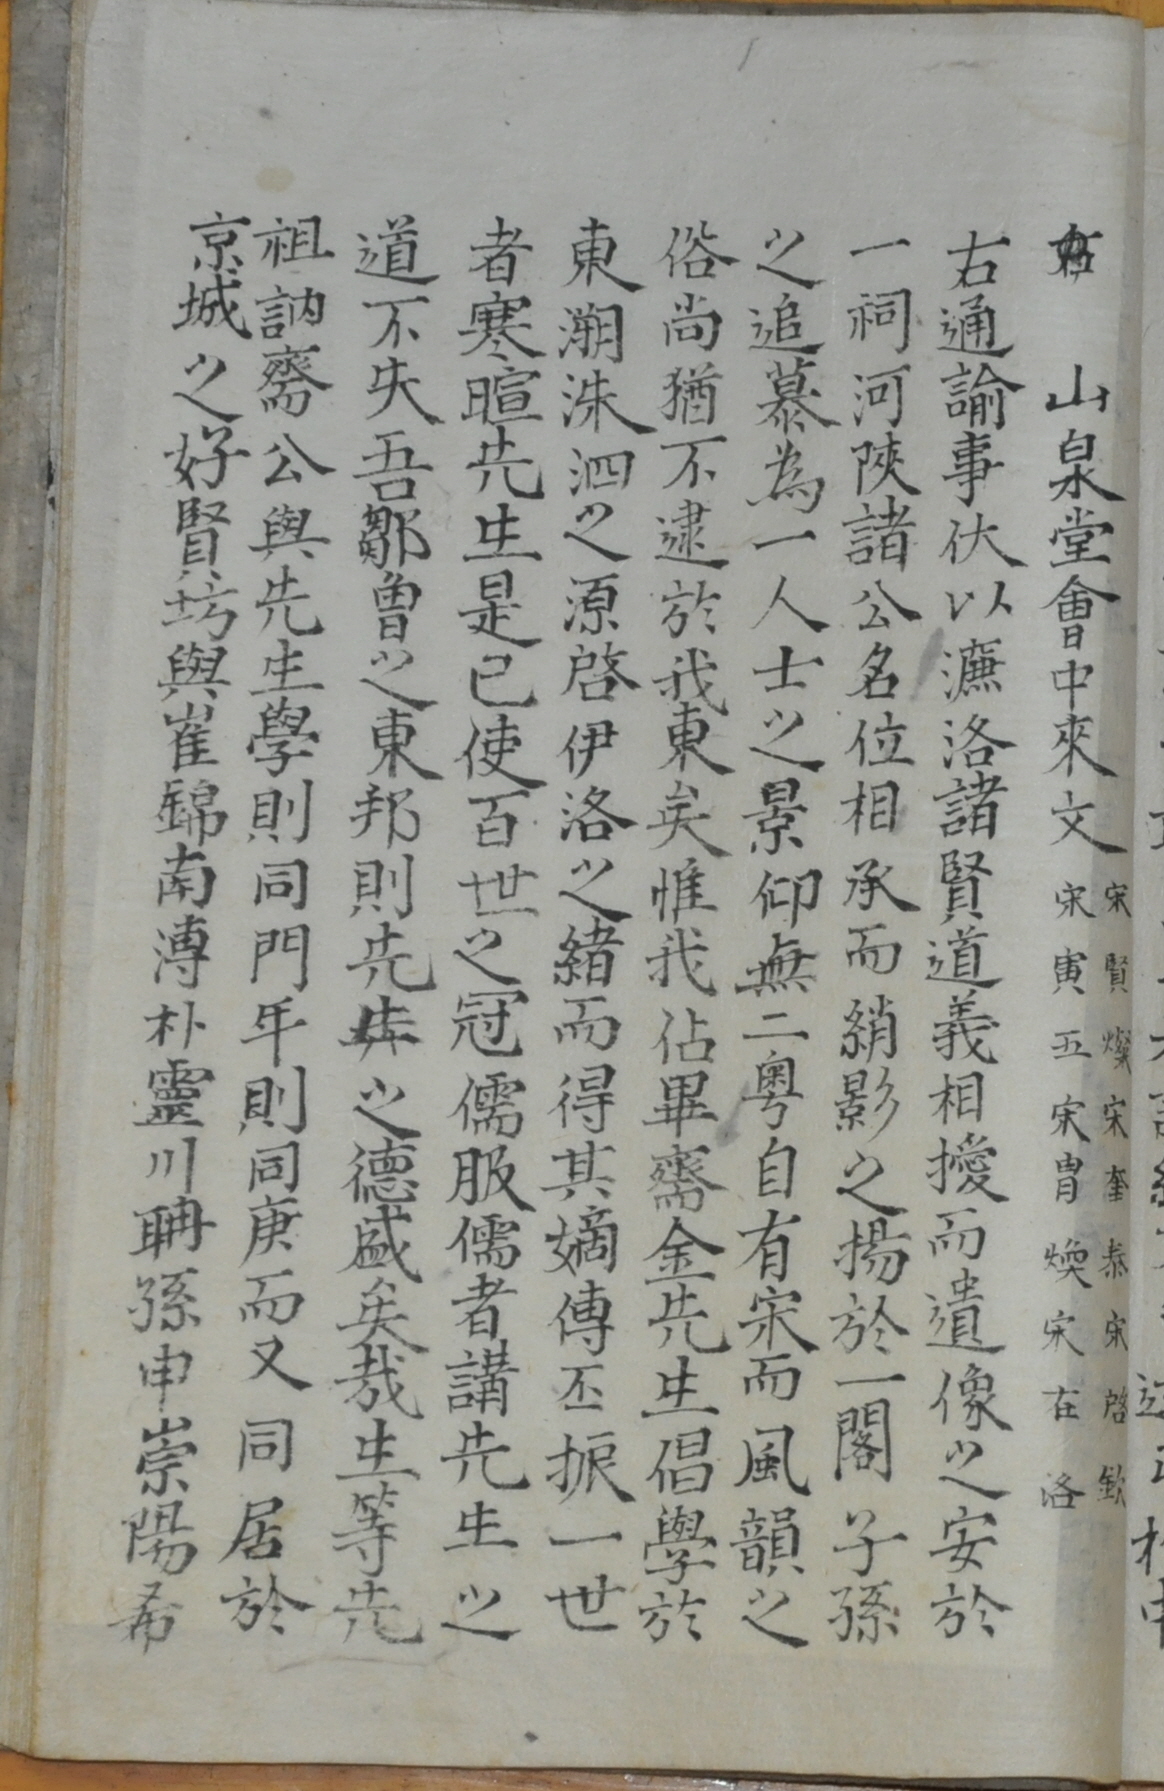 山泉堂會中來文 宋賢燦宋奎泰宋啓欽
宋寅五宋胄煥宋在洛
右通諭事伏以濂洛諸賢道義相授而遺像之安於
一祠河陜諸公名位相承而綃影之揚於一閣子孫
之追慕為一人士之景仰無二粤自有宋而風韻之
俗尚猶不逮於我東矣惟我佔畢齋金先生倡學於
東溯洙泗之源啓伊洛之緒而得其嫡傳丕振一世
者寒暄先生是已使百世之冠儒服儒者講先生之
道不失吾鄒魯之東邦則先生之德盛矣哉生等先
祖訥齋公與先生學則同門年則同庚而又同居於
京城之好賢坊與崔錦南溥朴靈川聃孫申崇陽希